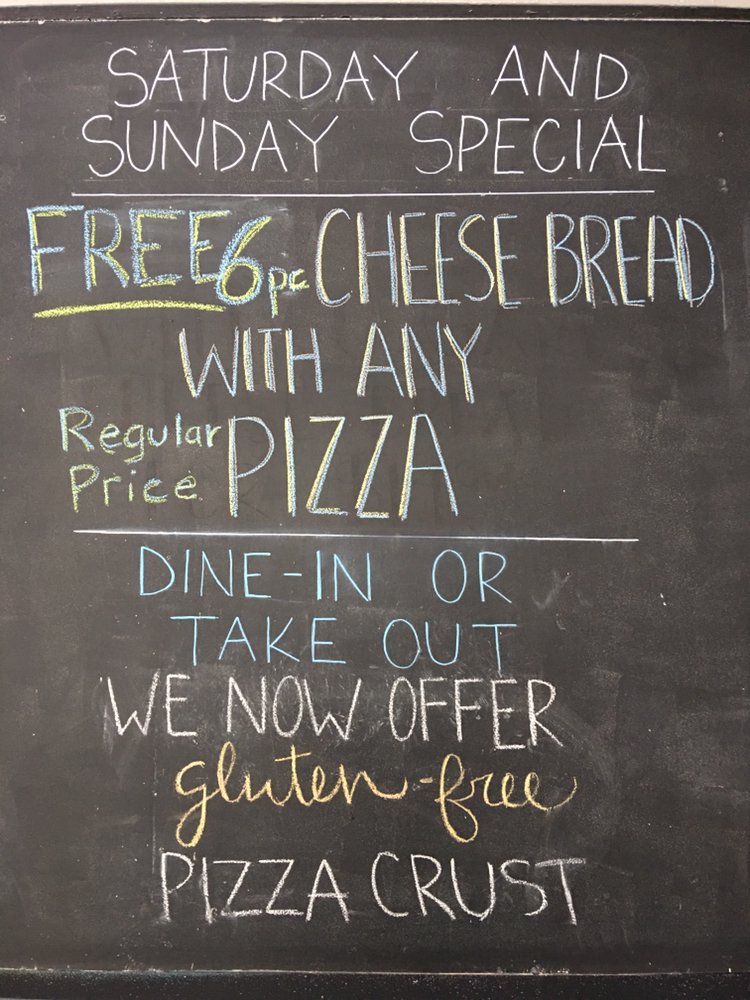 SATURDAY AND
SUNDAY SPECIAL
FREE 6pc CHEESE BREAD
WITH ANY
Regular
Price PIZZA
DINE-IN OR
TAKE OUT
WE NOW OFFER
gluten-free
PIZZA CRUST